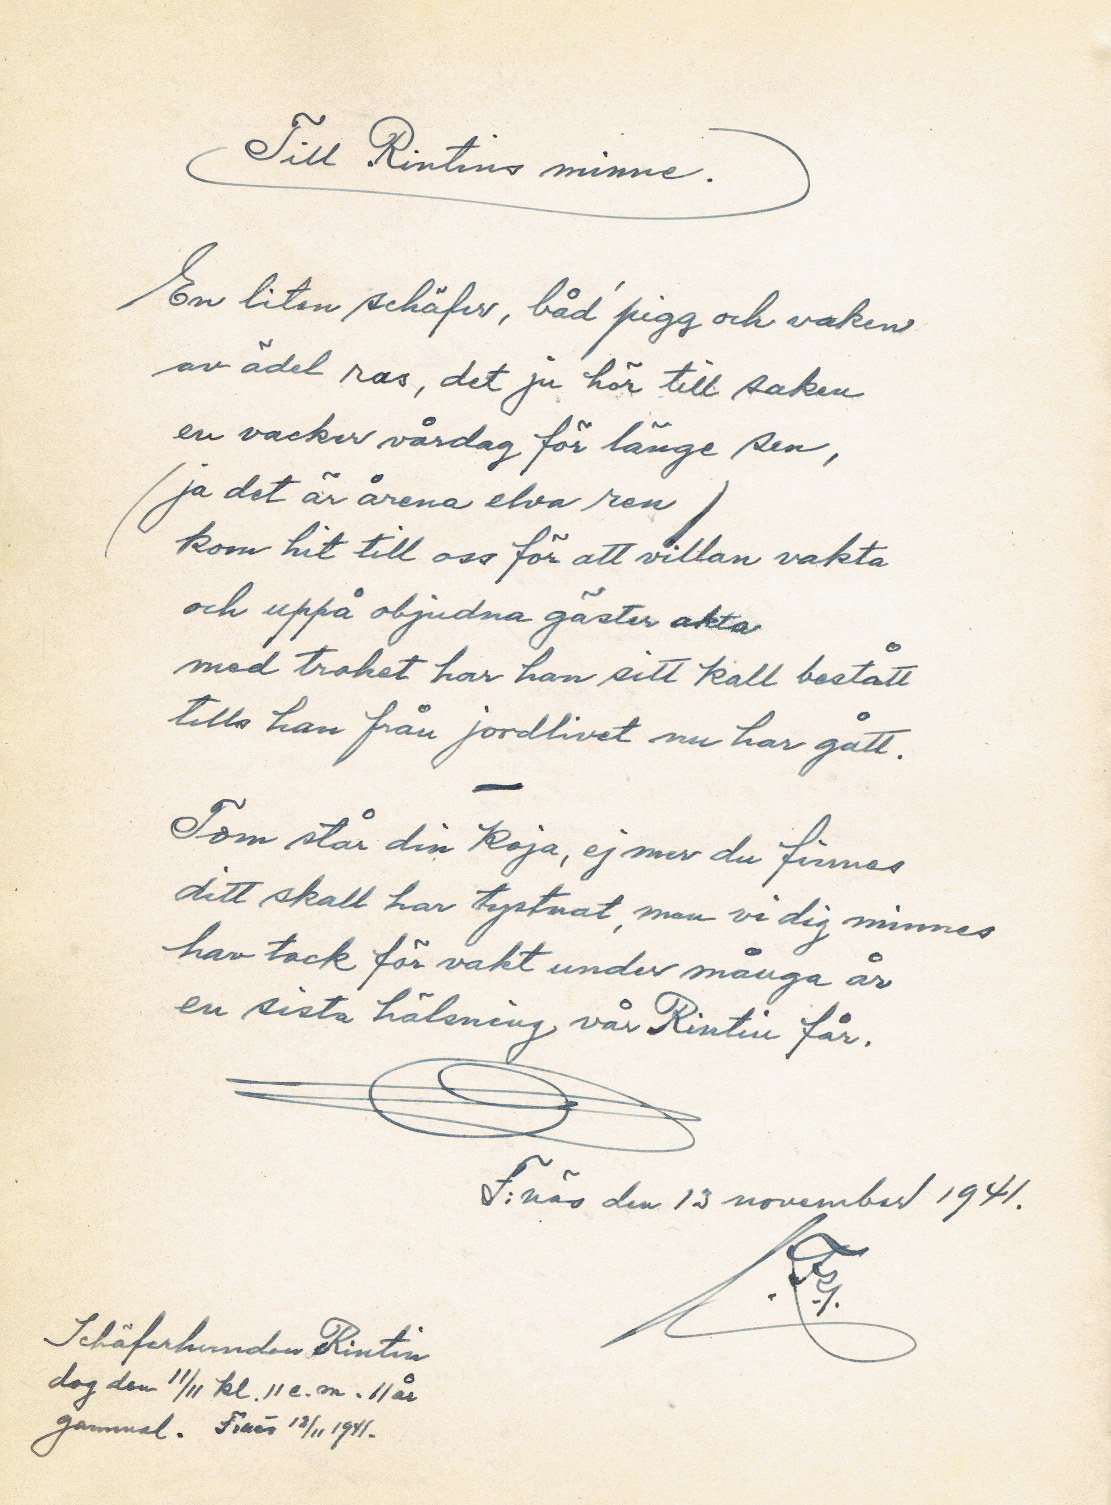 Till Rintins minne.
En liten schäfer, båd' pigg och vaken
av ädel ras, det ju hör till saken
en vacker vårdag för länge sen,
(ja det är årena elva ren)
kom hit till oss för att villan vakta
och uppå objudna gäster akta
med trohet har han sitt kall bestått
tills han från jordlivet nu har gått.
—
Tom står din koja, ej mer du finnes
ditt skall har tystnat, men vi dig minnes
hav tack för vakt under många år
en sista hälsning vår Rintin får.
F:näs den 13 november 1941.
Schäferhunden Rintin
dog den 11/11 kl. 11 e.m. 11 år
gammal. F:näs 13/11 1941.